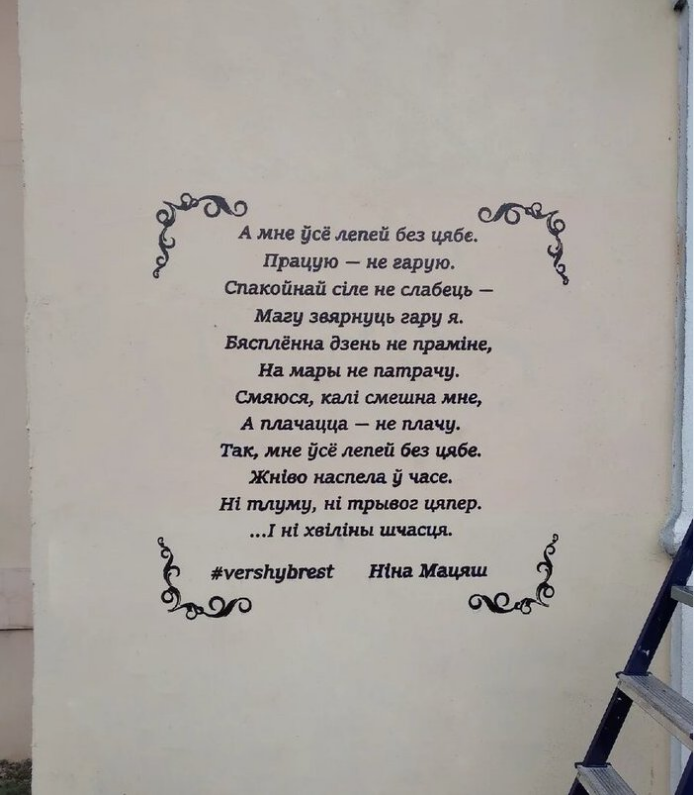 А мне ўсё лепей без цябе.
Працую — не гарую.
Спакойнай сіле не слабець —
Магу звярнуць гару я.
Бясплённа дзень не праміне,
На мары не патрачу.
Смяюся, калі смешна мне,
А плачацца — не плачу.
Так, мне ўсё лепей без цябе.
Жніво наспела ў часе.
Ні тлуму, ні трывог цяпер.
...І ні хвіліны шчасця.
#vershybrest Ніна Мацяш